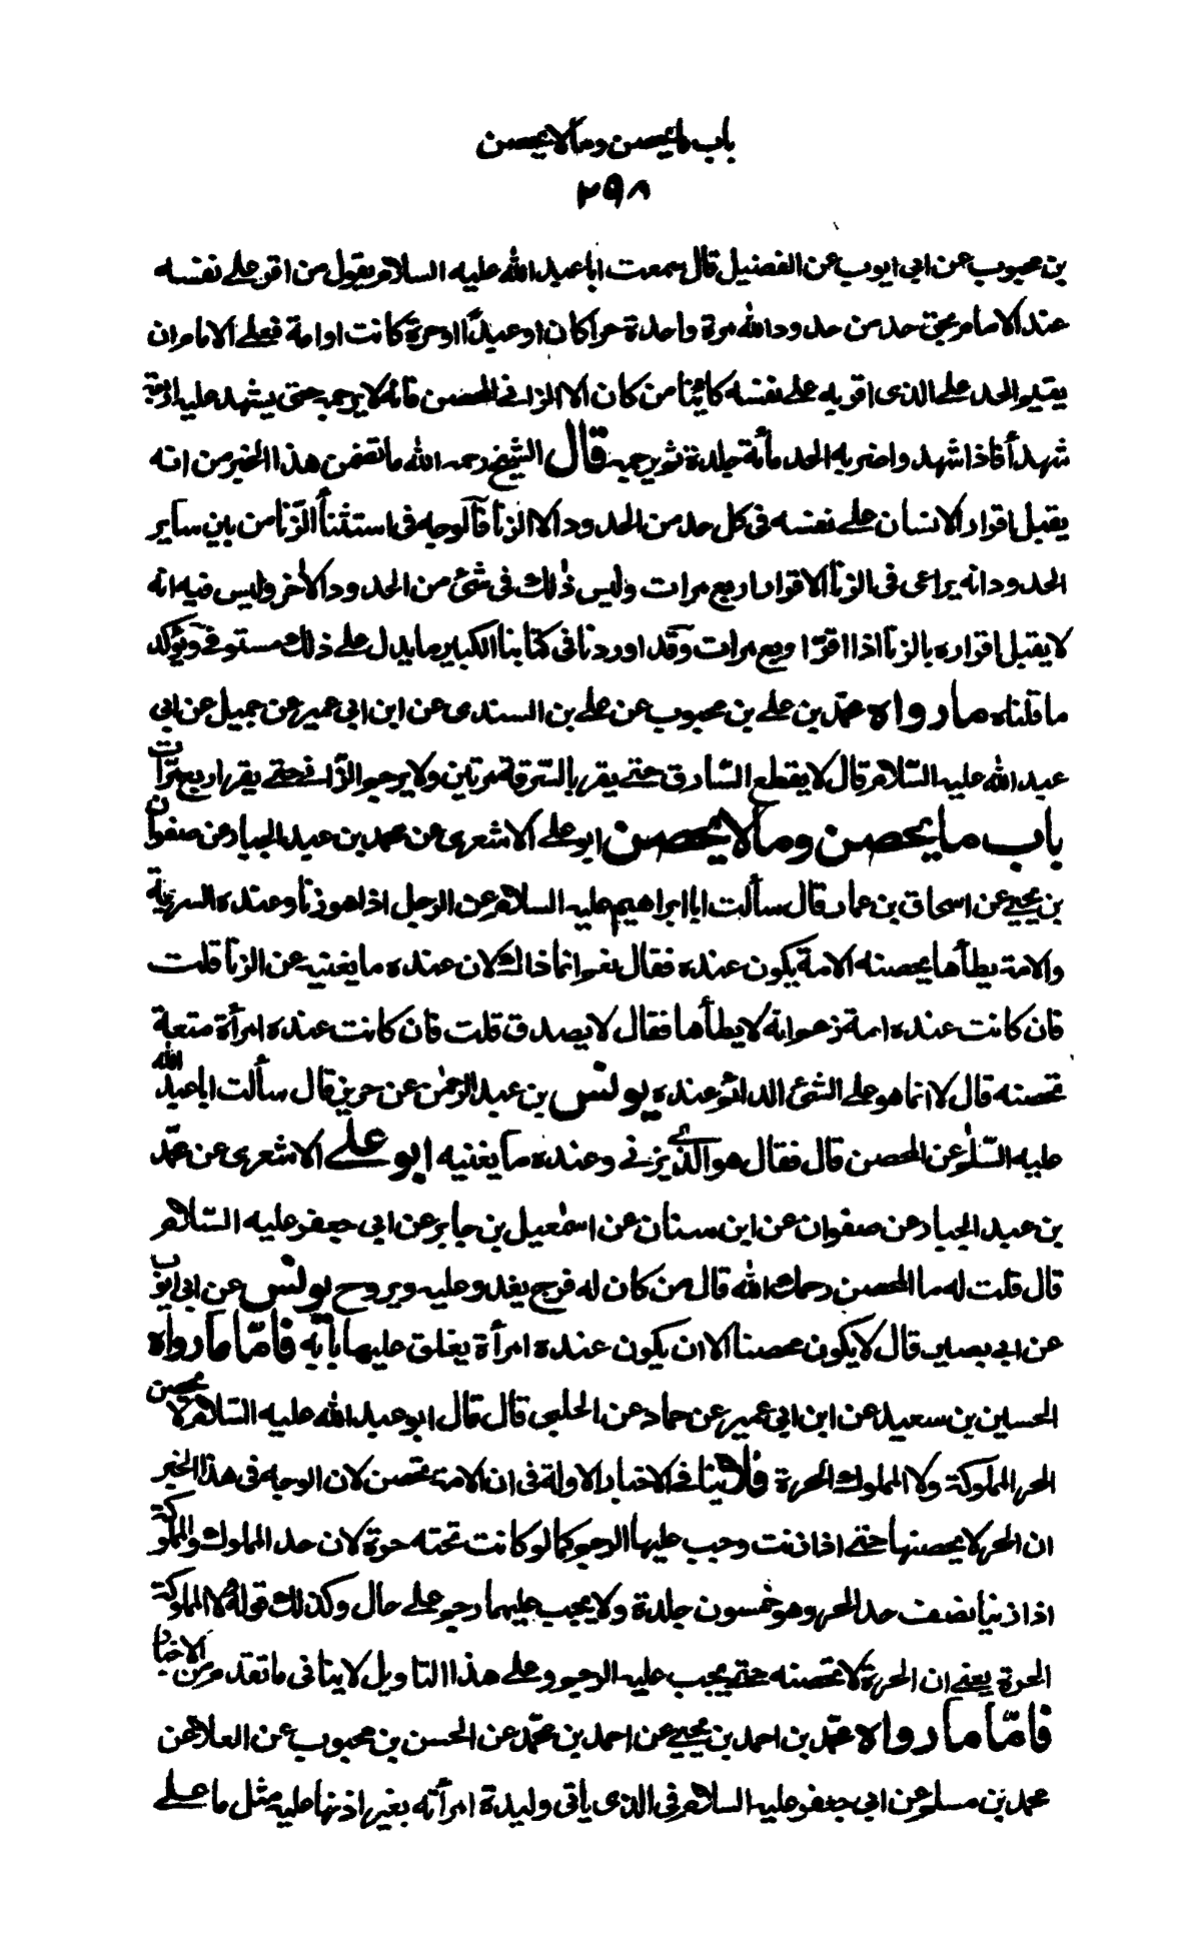 باب ما يحصن وما لا يحصن
٢٩٨
بن محبوب عن ابى ايوب عن الفضيل قال سمعت ابا عبد الله عليه السلام يقول من اقر على نفسه
عند الامام بحق حد من حدود الله مرة واحدة حرا كان او عبدًا او حرة كانت او امة فعلى الامام ان
يقيم الحد على الذى اقر به على نفسه كائنا من كان الا الزانى المحصن فانه لا يرجمه حتى يشهد عليه اربعة
شهدأ فاذا شهد واضربه الحد مأئة جلدة ثم يرجمه قال الشيخ رحمه الله ما تضمن هذا الخبر من انه
يقبل اقرار الانسان على نفسه فى كل حد من الحدود الا الزنا فالوجه فى استثنأ الزّنا من بين ساير
الحدود انه يراعى فى الزنا الاقرار اربع مرات وليس ذلك فى شئ من الحدود الاخر وليس فيه انه
لا يقبل اقراره بالزنا اذا اقرّ اربع مرات وقد اوردنا فى كتابنا الكبير ما يدل على ذلك مستوفى ويؤكد
ما قلناه ما رواه محمّد بن على بن محبوب عن على بن السندى عن ابن ابى عمير عن جميل عن ابى
عبد الله عليه السّلام قال لا يقطع السّارق حتى يقر بالسّرقة مرتين ولا يرجم الزّانى حتى يقر اربع مرّات
باب ما يحصن وما لا يحصن ابو على الاشعرى عن محمد بن عبد الجبار عن صفوان
بن يحيى عن اسحاق بن عمار قال سألت ابا ابراهيم عليه السلام عن الرجل اذا هو زنا وعنده السرية
والامة يطأها يحصنه الامة يكون عنده فقال نعم انما ذاك لان عنده ما يغنيه عن الزنا قلت
فان كانت عنده امة زعم انه لا يطأها فقال لا يصدق قلت فان كانت عنده امرأة متعة
تحصنه قال لا انما هو على الشئ الدائم عنده يونس بن عبد الرحمٰن عن حريز قال سألت ابا عبد الله
عليه السّلم عن المحصن قال فقال هو الّذى يزنى وعنده ما يغنيه ابو على الاشعرى عن محمّد
بن عبد الجبار عن صفوان عن ابن سنان عن اسمٰعيل بن جابر عن ابى جعفر عليه السّلام
قال قلت له ما المحصن رحمك الله قال من كان له فرج يغدو عليه ويروح يونس عن ابى ايّوب
عن ابى بصير قال لا يكون محصنا الا ان يكون عنده امرأة يغلق عليها بابه فامّا ما رواه
الحسين بن سعيد عن ابن ابى عمير عن حماد عن الحلبى قال قال ابو عبد الله عليه السّلام لا يحصن
الحر المملوكة ولا المملوك الحرة فلا ينافى الاخبار الاولة فى ان الامة تحصن لان الوجه فى هذا الخبر
ان الحر لا يحصنها حتى اذا زنت وجب عليها الرجم كما لو كانت تحته حرة لان حد المملوك والمملوكة
اذا زنيا نصف حد الحر وهو خمسون جلدة ولا يجب عليهما رجم على حال وكذلك قوله ولا المملوكة
الحرة يعنى ان الحرة لا تحصنه حتى يجب عليه الرجم وعلى هذا التاويل لا ينافى ما تقدم من الاخبار
فامّا ما رواه محمّد بن احمد بن يحيى عن احمد بن محمّد عن الحسن بن محبوب عن العلا عن
محمد بن مسلم عن ابى جعفر عليه السلام فى الذى ياتى وليدة امرأته بغير اذنها عليه مثل ما على